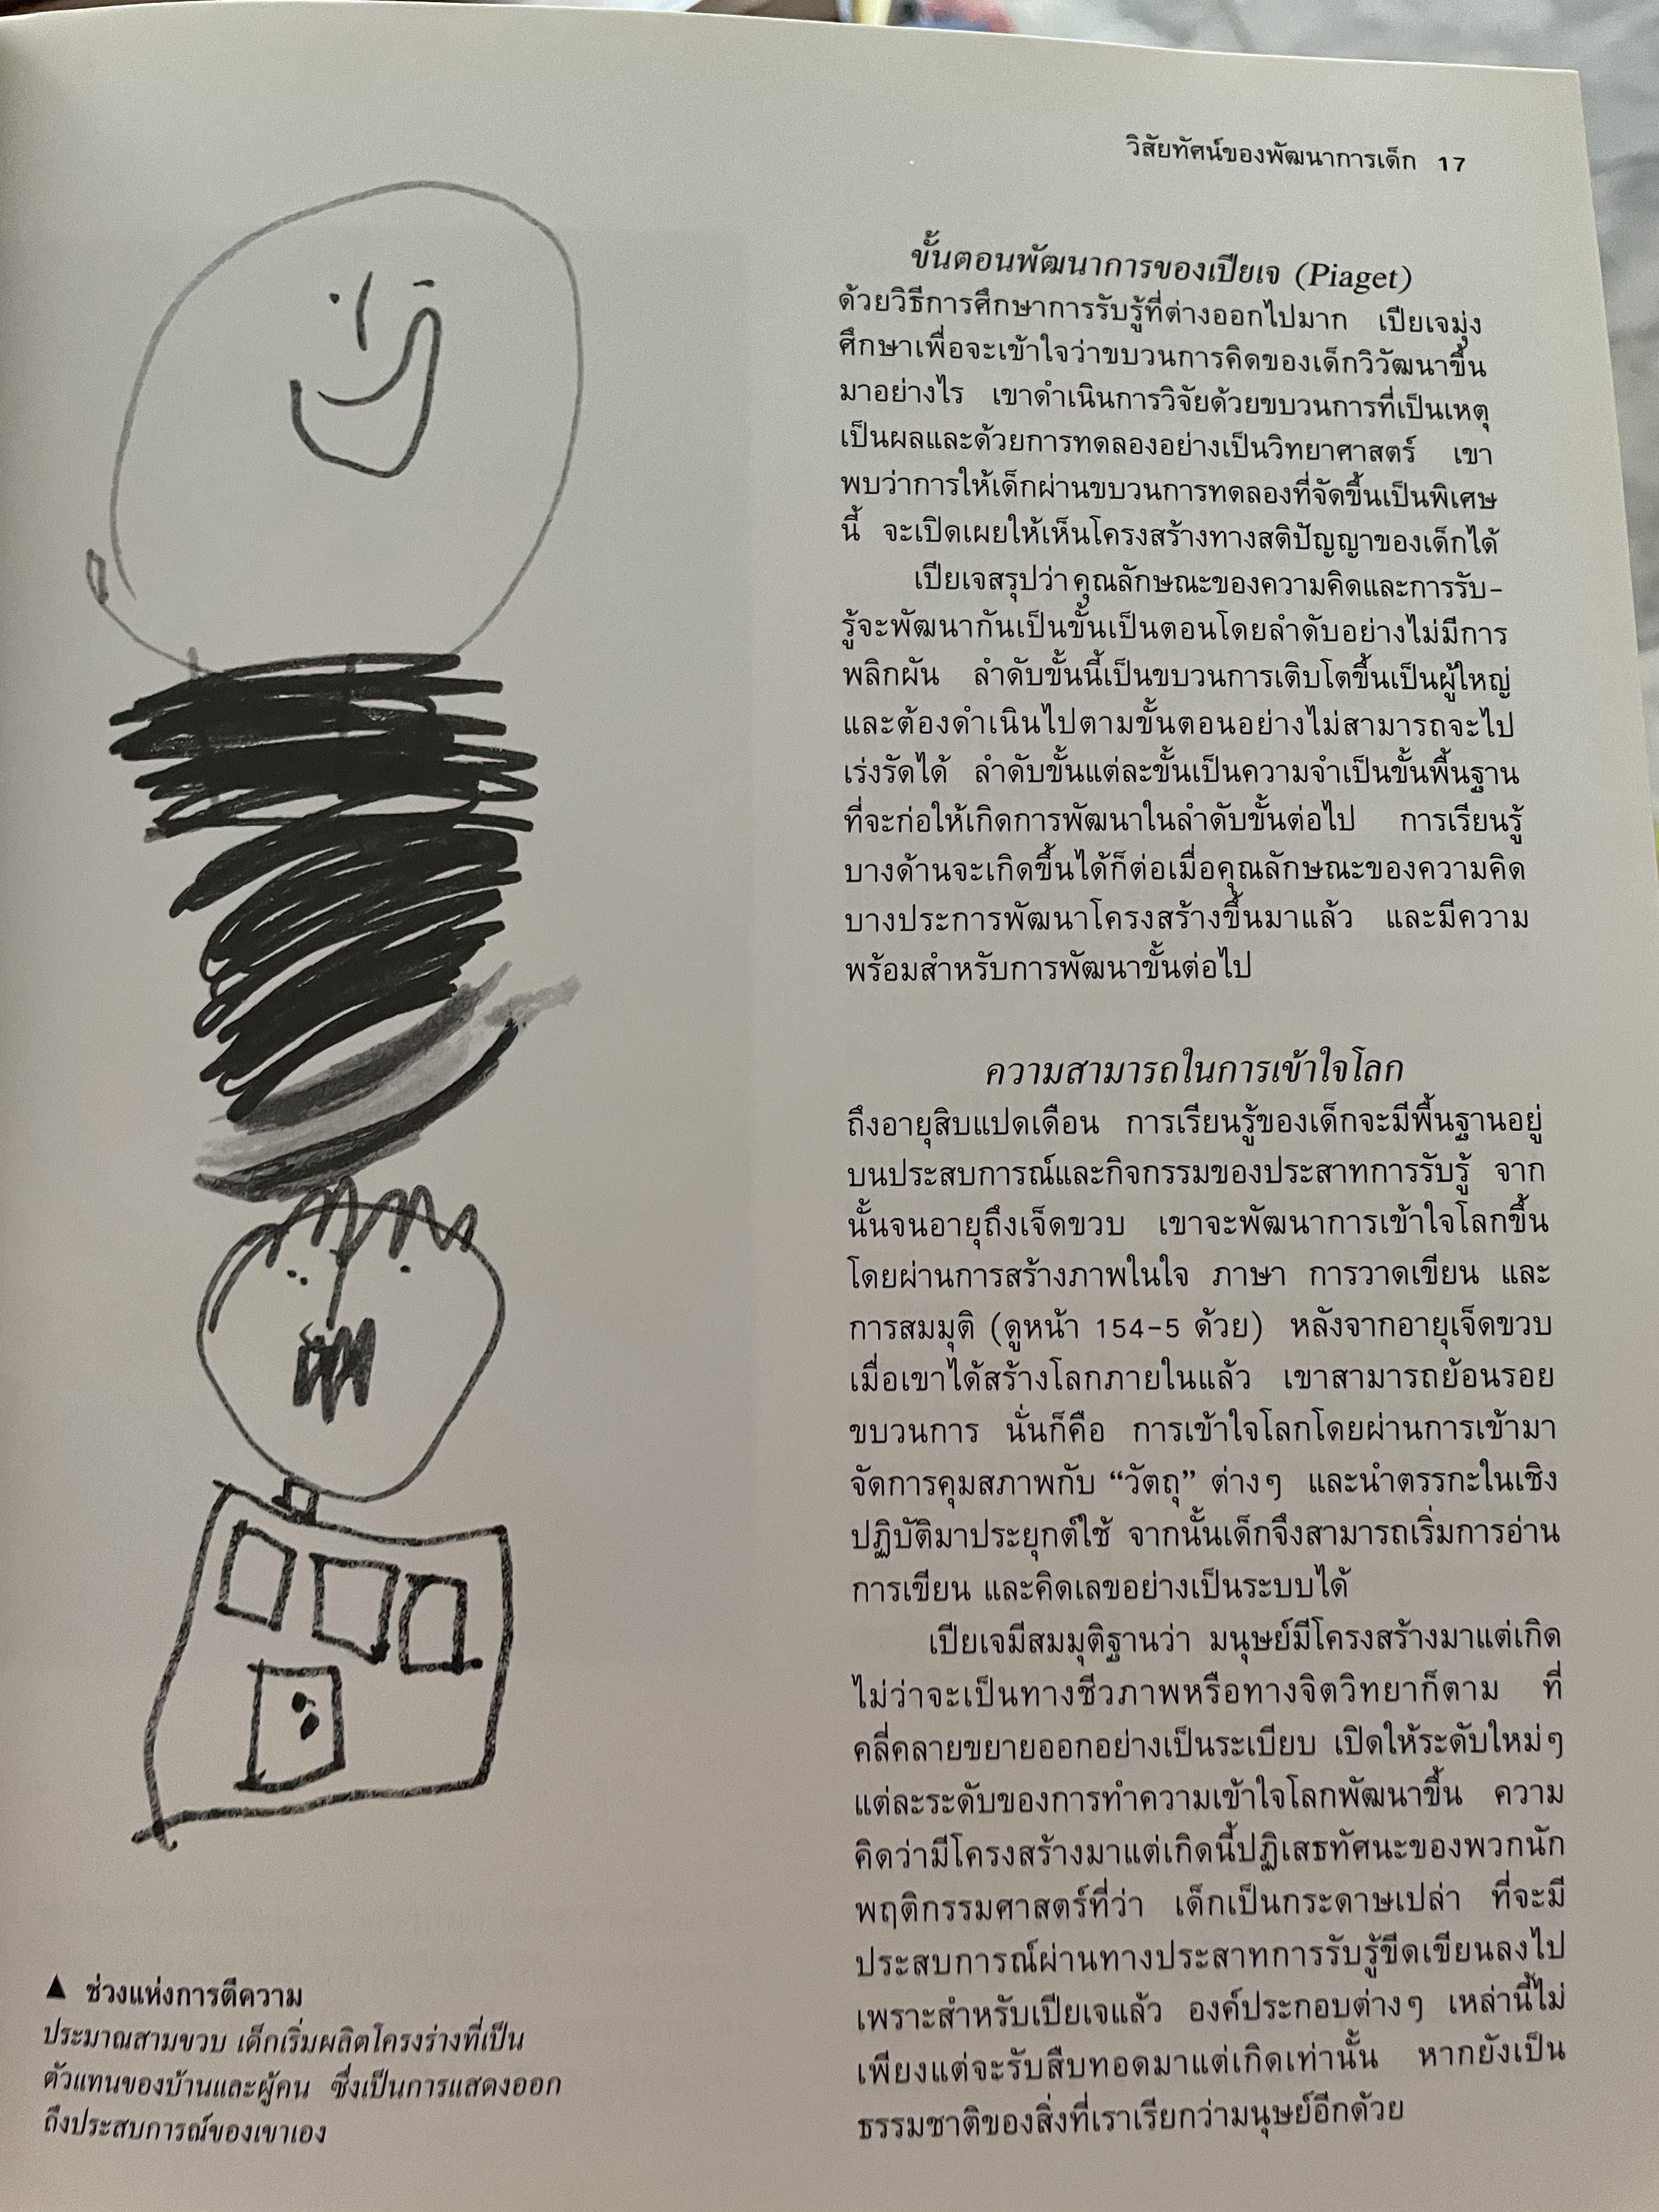 วิสัยทัศน์ของพัฒนาการเด็ก 17
ขั้นตอนพัฒนาการของเปียเจ (Piaget)
ด้วยวิธีการศึกษาการรับรู้ที่ต่างออกไปมาก เปียเจมุ่ง
ศึกษาเพื่อจะเข้าใจว่าขบวนการคิดของเด็กวิวัฒนาขึ้น
มาอย่างไร เขาดำเนินการวิจัยด้วยขบวนการที่เป็นเหตุ
เป็นผลและด้วยการทดลองอย่างเป็นวิทยาศาสตร์ เขา
พบว่าการให้เด็กผ่านขบวนการทดลองที่จัดขึ้นเป็นพิเศษ
นี้ จะเปิดเผยให้เห็นโครงสร้างทางสติปัญญาของเด็กได้
เปียเจสรุปว่าคุณลักษณะของความคิดและการรับ-
รู้จะพัฒนากันเป็นขั้นเป็นตอนโดยลำดับอย่างไม่มีการ
พลิกผัน ลำดับขั้นนี้เป็นขบวนการเติบโตขึ้นเป็นผู้ใหญ่
และต้องดำเนินไปตามขั้นตอนอย่างไม่สามารถจะไป
เร่งรัดได้ ลำดับขั้นแต่ละขั้นเป็นความจำเป็นขั้นพื้นฐาน
ที่จะก่อให้เกิดการพัฒนาในลำดับขั้นต่อไป การเรียนรู้
บางด้านจะเกิดขึ้นได้ก็ต่อเมื่อคุณลักษณะของความคิด
บางประการพัฒนาโครงสร้างขึ้นมาแล้ว และมีความ
พร้อมสำหรับการพัฒนาขั้นต่อไป
ความสามารถในการเข้าใจโลก
ถึงอายุสิบแปดเดือน การเรียนรู้ของเด็กจะมีพื้นฐานอยู่
บนประสบการณ์และกิจกรรมของประสาทการรับรู้ จาก
นั้นจนอายุถึงเจ็ดขวบ เขาจะพัฒนาการเข้าใจโลกขึ้น
โดยผ่านการสร้างภาพในใจ ภาษา การวาดเขียน และ
การสมมุติ (ดูหน้า 154-5 ด้วย) หลังจากอายุเจ็ดขวบ
เมื่อเขาได้สร้างโลกภายในแล้ว เขาสามารถย้อนรอย
ขบวนการ นั่นก็คือ การเข้าใจโลกโดยผ่านการเข้ามา
จัดการคุมสภาพกับ “วัตถุ” ต่างๆ และนำตรรกะในเชิง
ปฏิบัติมาประยุกต์ใช้ จากนั้นเด็กจึงสามารถเริ่มการอ่าน
การเขียน และคิดเลขอย่างเป็นระบบได้
เปียเจมีสมมุติฐานว่า มนุษย์มีโครงสร้างมาแต่เกิด
ไม่ว่าจะเป็นทางชีวภาพหรือทางจิตวิทยาก็ตาม ที่
คลี่คลายขยายออกอย่างเป็นระเบียบ เปิดให้ระดับใหม่ๆ
แต่ละระดับของการทำความเข้าใจโลกพัฒนาขึ้น ความ
คิดว่ามีโครงสร้างมาแต่เกิดนี้ปฏิเสธทัศนะของพวกนัก
พฤติกรรมศาสตร์ที่ว่า เด็กเป็นกระดาษเปล่า ที่จะมี
ประสบการณ์ผ่านทางประสาทการรับรู้ขีดเขียนลงไป
เพราะสำหรับเปียเจแล้ว องค์ประกอบต่างๆ เหล่านี้ไม่
เพียงแต่จะรับสืบทอดมาแต่เกิดเท่านั้น หากยังเป็น
ธรรมชาติของสิ่งที่เราเรียกว่ามนุษย์อีกด้วย
▲ ช่วงแห่งการตีความ
ประมาณสามขวบ เด็กเริ่มผลิตโครงร่างที่เป็น
ตัวแทนของบ้านและผู้คน ซึ่งเป็นการแสดงออก
ถึงประสบการณ์ของเขาเอง